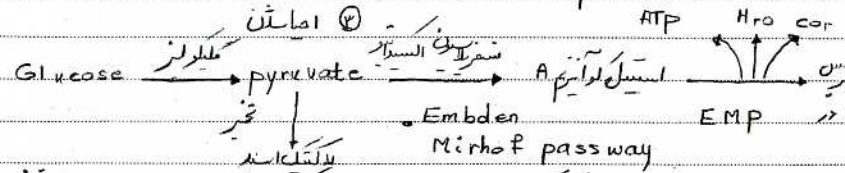 احیا شدن ③
ATP H₂O CO₂
Glucose گلیکولیز pyruvate فسفریلاسیون اکسیداتیو استیل کوآنزیم A
تخمیر
Embden EMP
لاکتیک اسید Mirhof passway